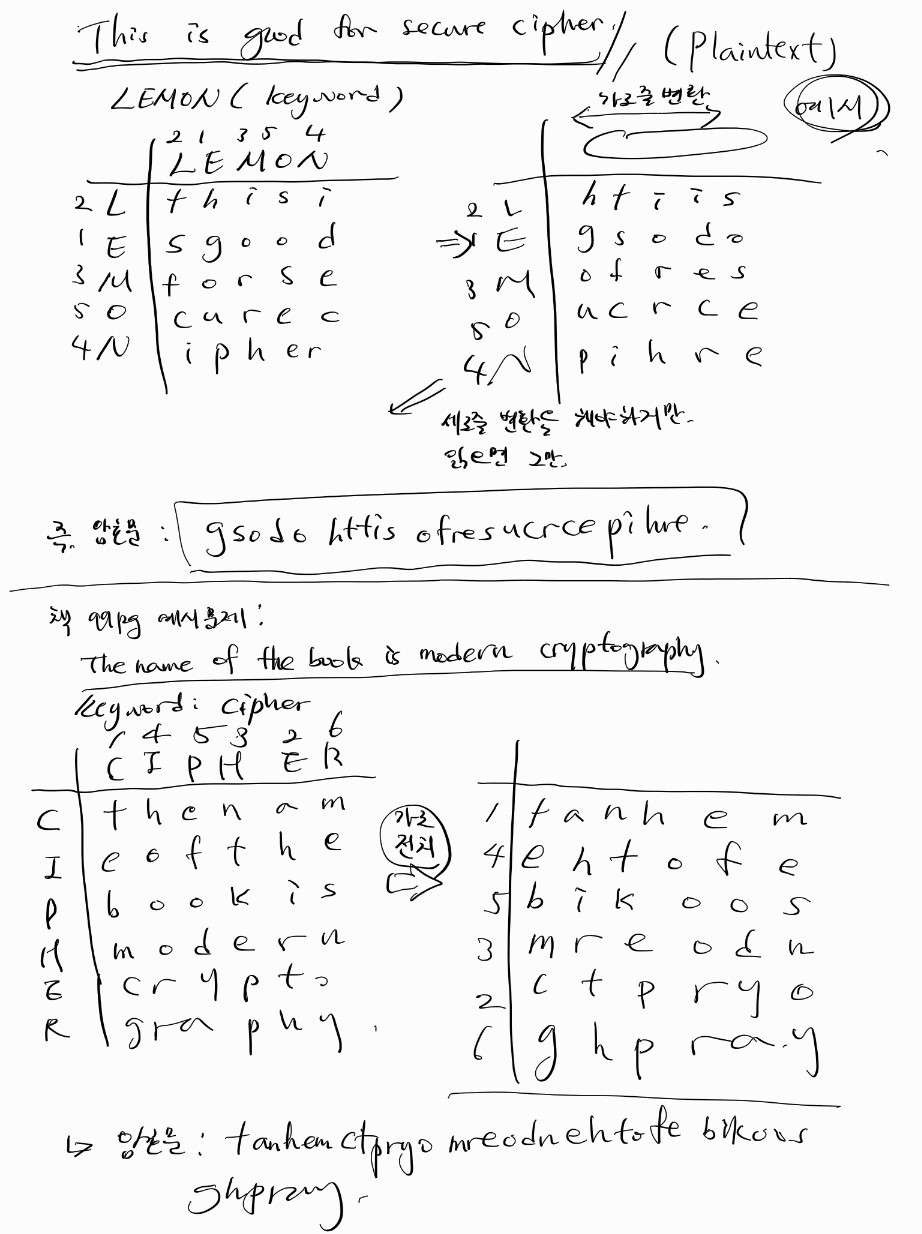 This is good for secure cipher.
(Plaintext)
LEMON (keyword)
가로줄 변환
예시
2 1 3 5 4
L E M O N
2 L t h i s i
1 E s g o o d
3 M f o r s e
5 O c u r e c
4 N i p h e r
2 L h t i i s
⇒1 E g s o d o
3 M o f r e s
5 O u c r c e
4 N p i h r e
세로줄 변환을 해야하지만.
읽으면 그만.
즉. 암호문 : gsodo httis ofresucrce pihre.
책 99pg 예시문제 :
The name of the book is modern cryptography.
keyword: cipher
1 4 5 3 2 6
C I P H E R
C t h e n a m
I e o f t h e
P b o o k i s
H m o d e r n
E c r y p t o
R g r a p h y .
가로
전치
1 t a n h e m
4 e h t o f e
5 b i k o o s
3 m r e o d n
2 c t p r y o
6 g h p r a . y
↳ 암호문 : tanhemctpryo mreodnehtofe bikoos
ghpray.